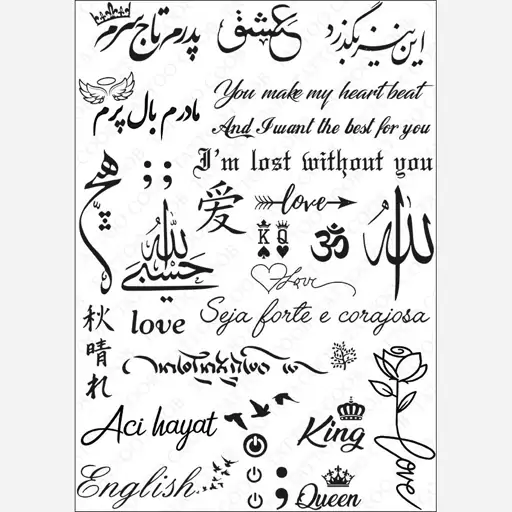 پدرم تاج سرم
عشق
این نیز بگذرد
مادرم بال پرم
You make my heart beat
And I want the best for you
I'm lost without you
هیچ
;
;
愛
love
K
Q
ॐ
الله
حسبي الله
Love
Seja forte e corajosa
秋晴れ
love
Aci hayat
King
English
;
Queen
love